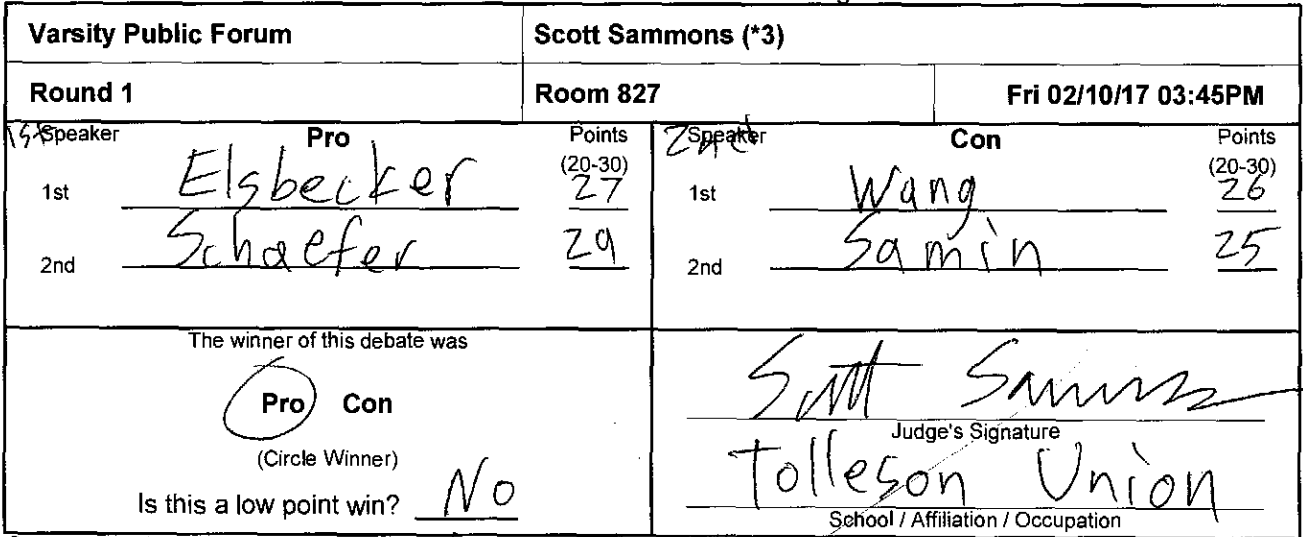 Varsity Public Forum Scott Sammons (*3)
Round 1 Room 827 Fri 02/10/17 03:45PM
1st Speaker Pro Points
(20-30)
1st Elsbecker 27
2nd Schaefer 29
2nd Speaker Con Points
(20-30)
1st Wang 26
2nd Samin 25
The winner of this debate was
Pro Con
(Circle Winner)
Is this a low point win? No
Scott Sammons
Judge's Signature
Tolleson Union
School / Affiliation / Occupation